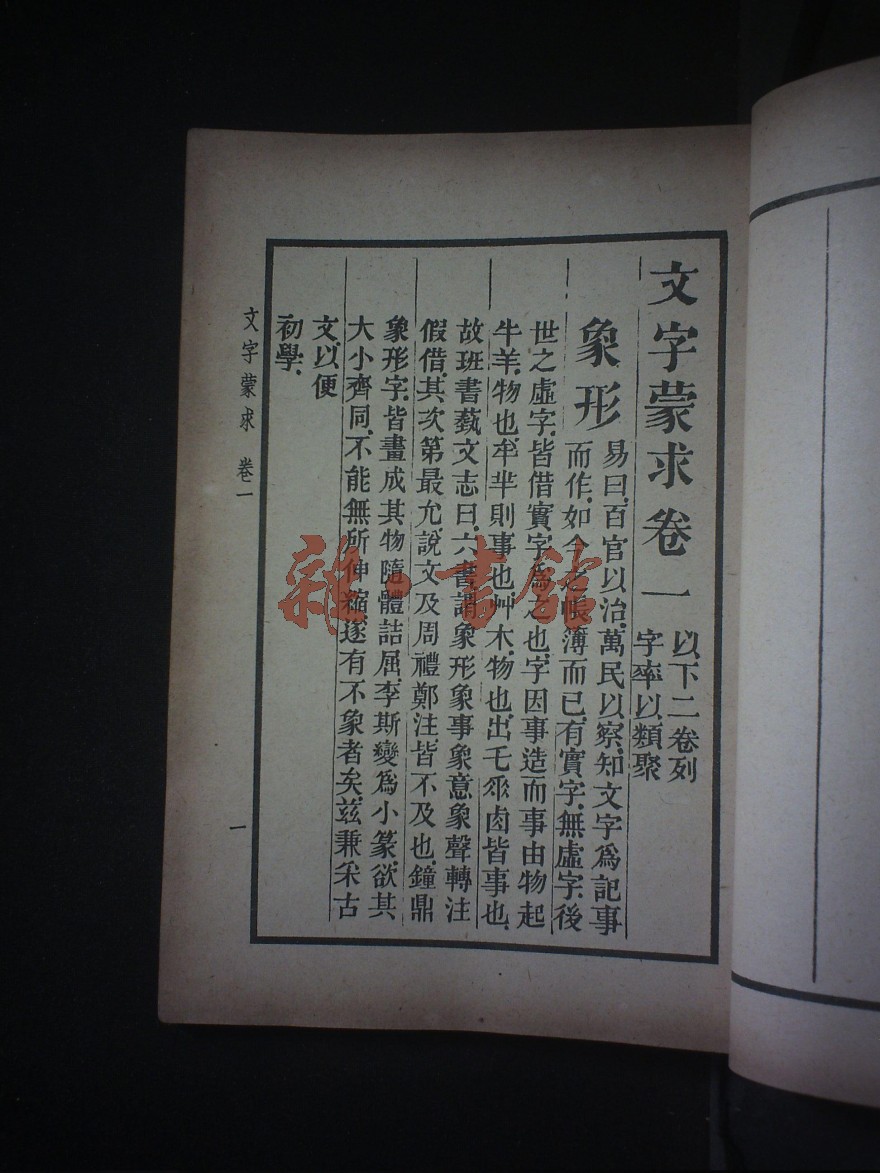 文字蒙求卷一
以下二卷列
字率以類聚
象形
易曰,百官以治,萬民以察,知文字爲記事
而作,如今之帳簿而已,有實字,無虛字,後
世之虛字,皆借實字爲之也,字因事造而事由物起
牛羊,物也,牟羋則事也,艸木,物也,出乇𠂹卤皆事也,
故班書藝文志曰,六書,謂象形象事象意象聲轉注
假借,其次第最允,說文及周禮鄭注皆不及也,鐘鼎
象形字,皆畫成其物隨體詰屈,李斯變爲小篆,欲其
大小齊同,不能無所伸縮,遂有不象者矣,玆兼采古
文,以便
初學,
文字蒙求 卷一
一
雜·書館